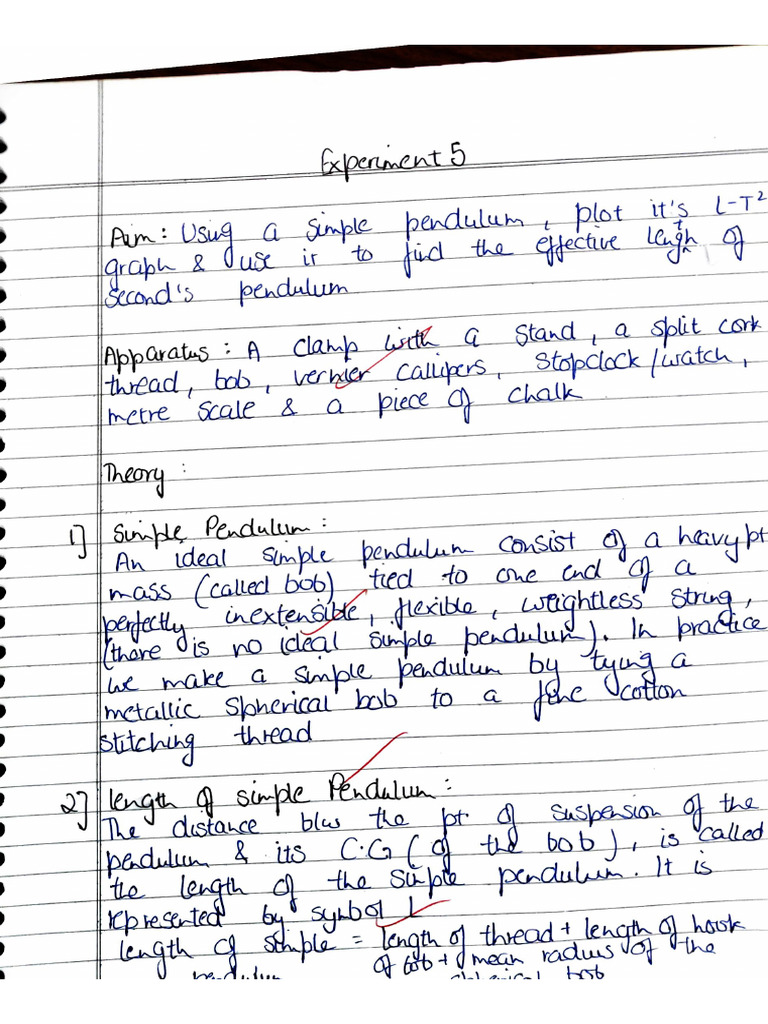 Experiment 5
Aim: Using a simple pendulum, plot it's L-T²
graph & use it to find the effective length of
second's pendulum
Apparatus: A clamp with a stand, a split cork
thread, bob, vernier callipers, stopclock/watch,
metre scale & a piece of chalk
Theory:
1] Simple Pendulum:
An ideal simple pendulum consist of a heavy pt
mass (called bob) tied to one end of a
perfectly inextensible, flexible, weightless string,
(there is no ideal simple pendulum). In practice
we make a simple pendulum by tying a
metallic spherical bob to a fine cotton
stitching thread
2] length of simple Pendulum:
The distance b/w the pt. of suspension of the
pendulum & its C.G (of the bob), is called
the length of the simple pendulum. It is
represented by symbol L
length of simple = length of thread + length of hook
pendulum of bob + mean radius of the
spherical bob